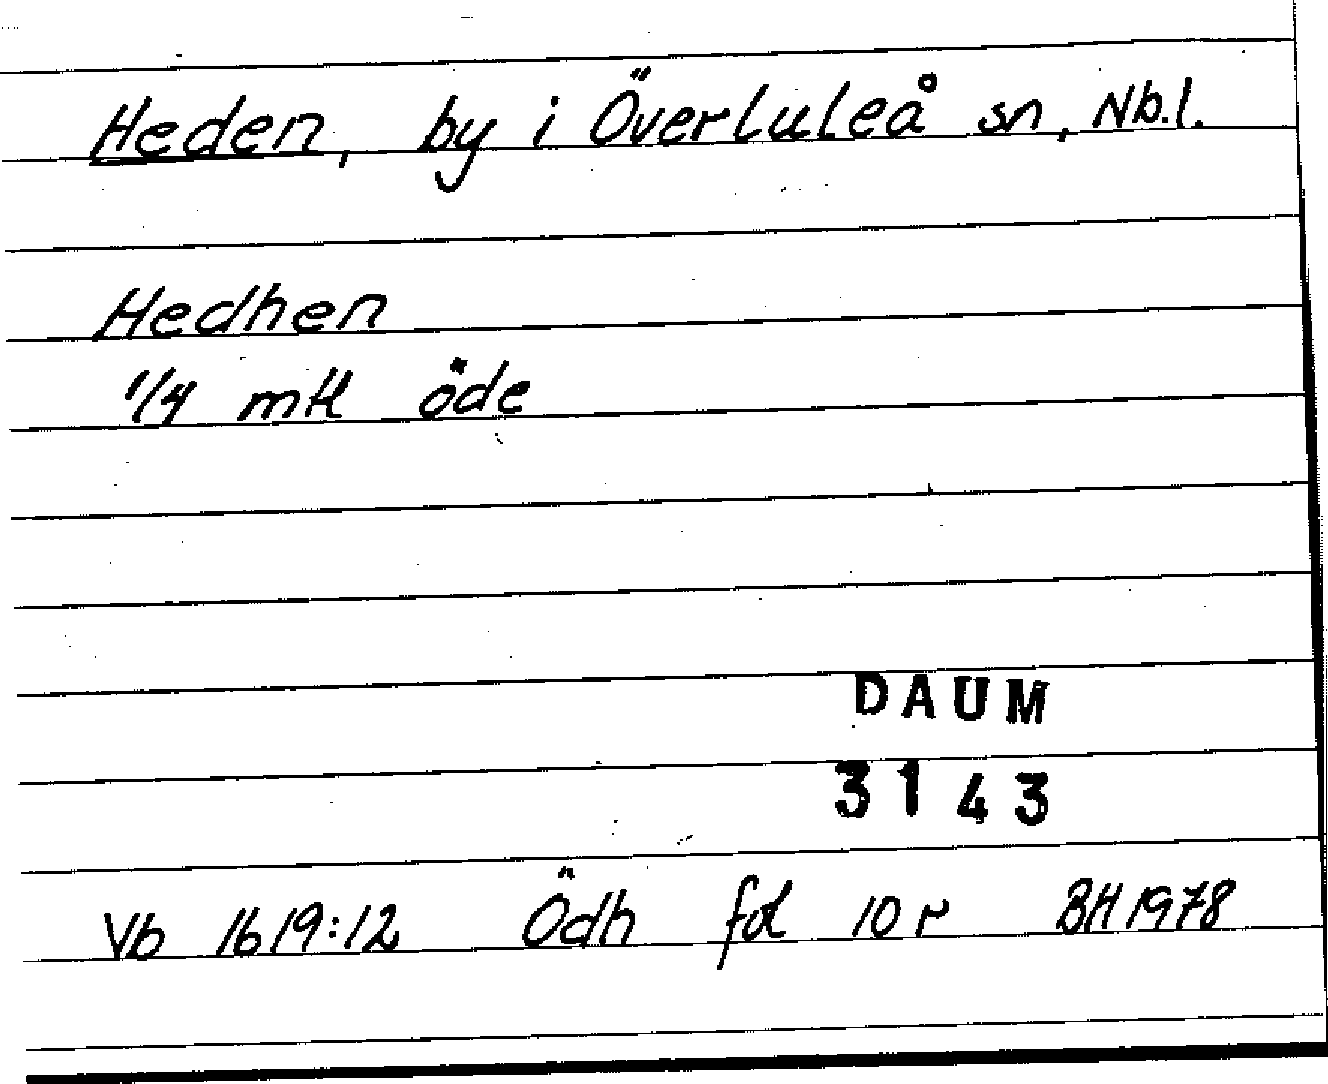 Heden, by i Överluleå sn, Nb.l.
Hedhen
1/4 mtl öde
DAUM
3143
Vb 1619:12 Ödh fol 10 r BH 1978